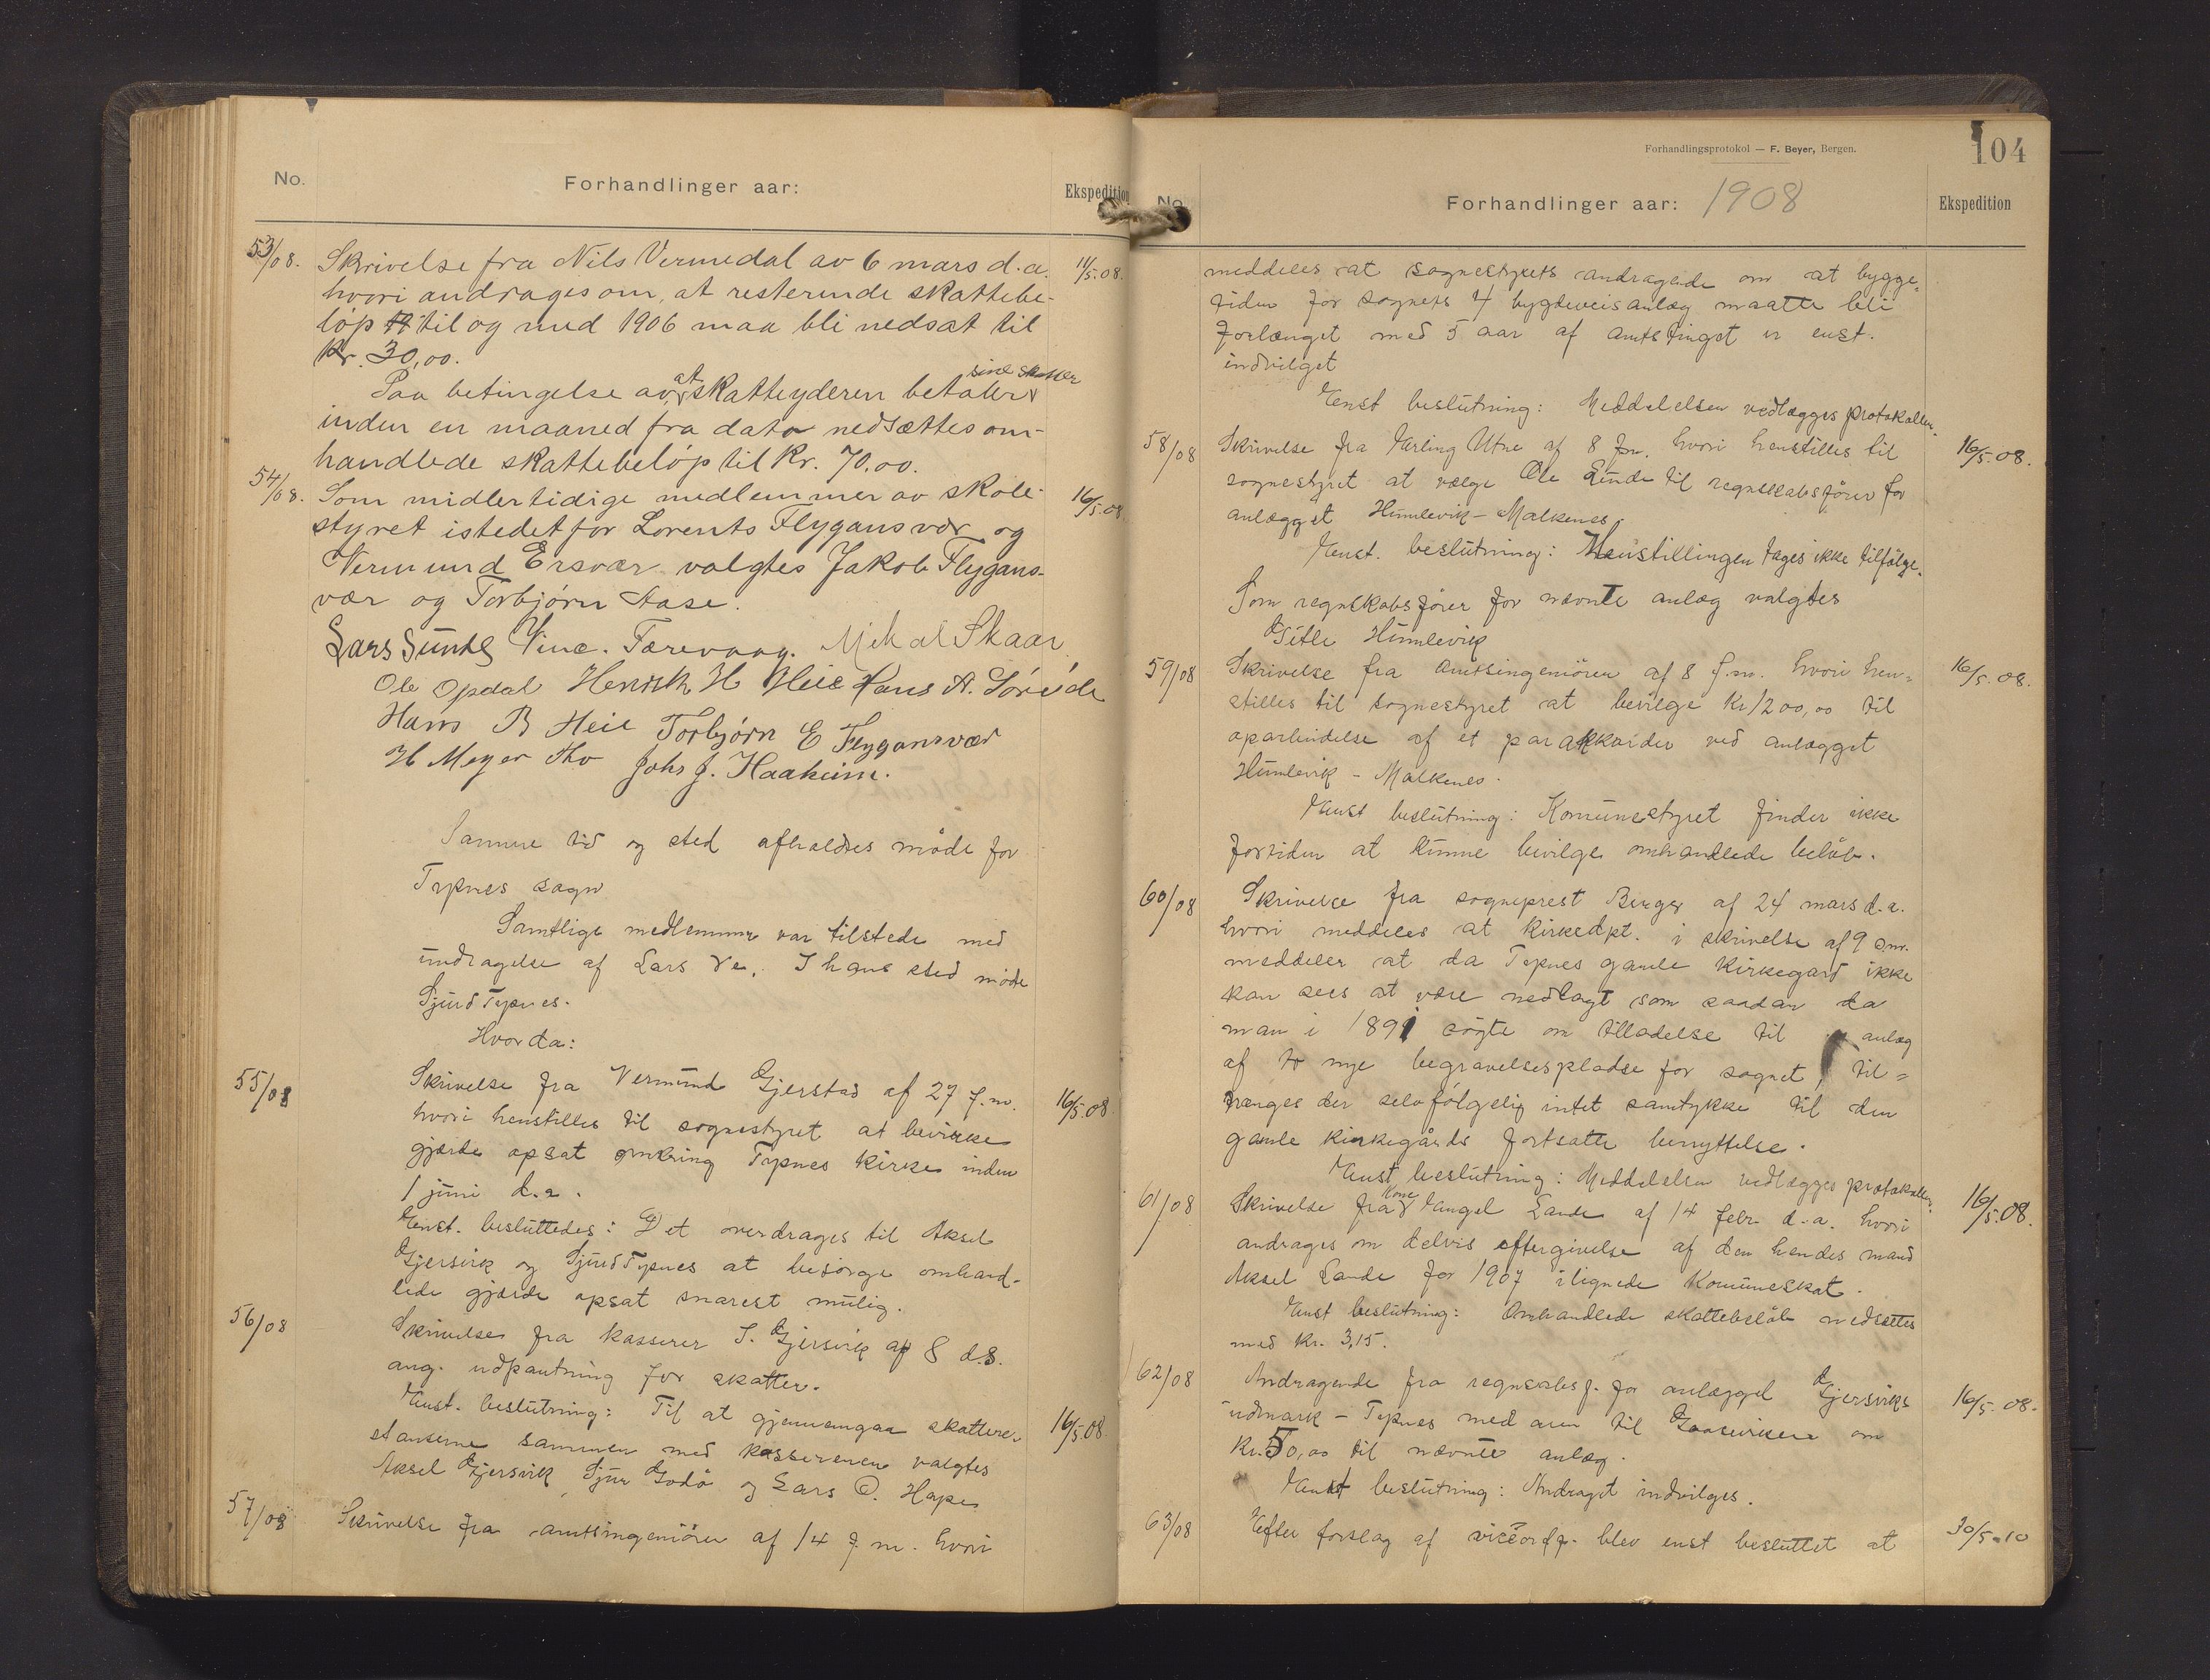 No.
Forhandlinger aar:
Ekspedition
53/08.
Skrivelse fra Nils Vermedal av 6 mars d.a.
11/5.08.
hvori andrages om, at resterende skattebe-
løp til og med 1906 maa bli nedsat til
Kr. 30,00.
Paa betingelse av, at skatteyderen betaler sine skatter
inden en maaned fra dato nedsættes om-
handlede skattebeløp til Kr. 70,00.
54/08.
Som midlertidige medlemmer av skole-
16/5.08
styret istedetfor Lorents Flygansvær og
Vermund Ersvær valgtes Jakob Flygans-
vær og Torbjørn Aase.
Lars Sunde Vinc. Færevaag. Mikal Skaar
Ole Opdal Henrik H Heie Hans A. Søreide
Hans B Heie Torbjørn E Flygansvær
H Meyer Johs J. Haaheim.
Samme tid og sted afholdtes møde for
Tysnes sogn
Samtlige medlemmer var tilstede med
undtagelse af Lars Ve. I hans sted mødte
Sjurd Tysnes.
Hvor da:
55/08
Skrivelse fra Vermund Gjerstad af 27 f.m.
16/5.08
hvori henstilles til sognestyret at bevirke
gjærde opsat omkring Tysnes kirke inden
1 juni d.a.
Enst. besluttedes: Det overdrages til Aksel
Gjersvik og Sjurd Tysnes at besørge omhand-
lede gjærde opsat snarest mulig.
56/08
Skrivelse fra kasserer S. Gjersvik af 8 d.s.
ang. udpantning for skatter.
Enst. beslutning: Til at gjennemgaa skattere-
16/5.08
stanserne sammen med kassereren valgtes
Aksel Gjersvik, Sjur Godø og Lars O. Hope
57/08
Skrivelse fra amtsingeniøren af 14 f.m. hvori
Forhandlingsprotokol — F. Beyer, Bergen.
104
No.
Forhandlinger aar: 1908
Ekspedition
meddeles at sognestyrets andragende om at bygge-
tiden for sognets 4 bygdeveisanlæg maatte bli
forlænget med 5 aar af amtstinget er enst.
indvilget
Enst beslutning: Meddelelsen vedlægges protokollen.
58/08
Skrivelse fra Erling Utne af 8 f.m. hvori henstilles til
16/5.08.
sognestyret at vælge Ole Lunde til regnskabsfører for
anlægget Humlevik - Malkenes.
Enst. beslutning: Henstillingen tages ikke tilfølge.
Som regnskabsfører for nævnte anlæg valgtes
Gitle Humlevik
59/08
Skrivelse fra amtsingeniøren af 8 f.m. hvori hen-
16/5.08.
stilles til sognestyret at bevilge Kr 1200,00 til
oparbeidelse af et par akkorder ved anlægget
Humlevik - Malkenes.
Enst beslutning: Komunestyret finder ikke
fortiden at kunne bevilge omhandlede beløb.
60/08
Skrivelse fra sogneprest Berger af 24 mars d.a.
hvori meddeles at Kirkedpt. i skrivelse af 9 s.m.
meddeler at da Tysnes gamle kirkegard ikke
kan sees at være nedlagt som saadan da
man i 1891 søgte om tilladelse til anlæg
af to nye begravelsespladse for sognet, til-
trænges der selvfølgelig intet samtykke til den
gamle kirkegårds fortsatte benyttelse.
Enst beslutning: Meddelelsen vedlægges protokollen.
61/08
Skrivelse fra Kone Engel Lande af 14 febr d.a. hvori
16/5.08.
andrages om delvis eftergivelse af den hendes mand
Aksel Lande for 1907 ilignede Komuneskat.
Enst beslutning: Omhandlede skattebeløb nedsættes
med Kr. 3,15.
62/08
Andragende fra regnskabsf. for anlægget Gjersviks
16/5.08.
udmark - Tysnes med arm til Gaaseviken om
Kr. 50,00 til nævnte anlæg.
Enst beslutning: Andraget indvilges.
63/08
Efter forslag af viceordf. blev enst besluttet at
30/5.10